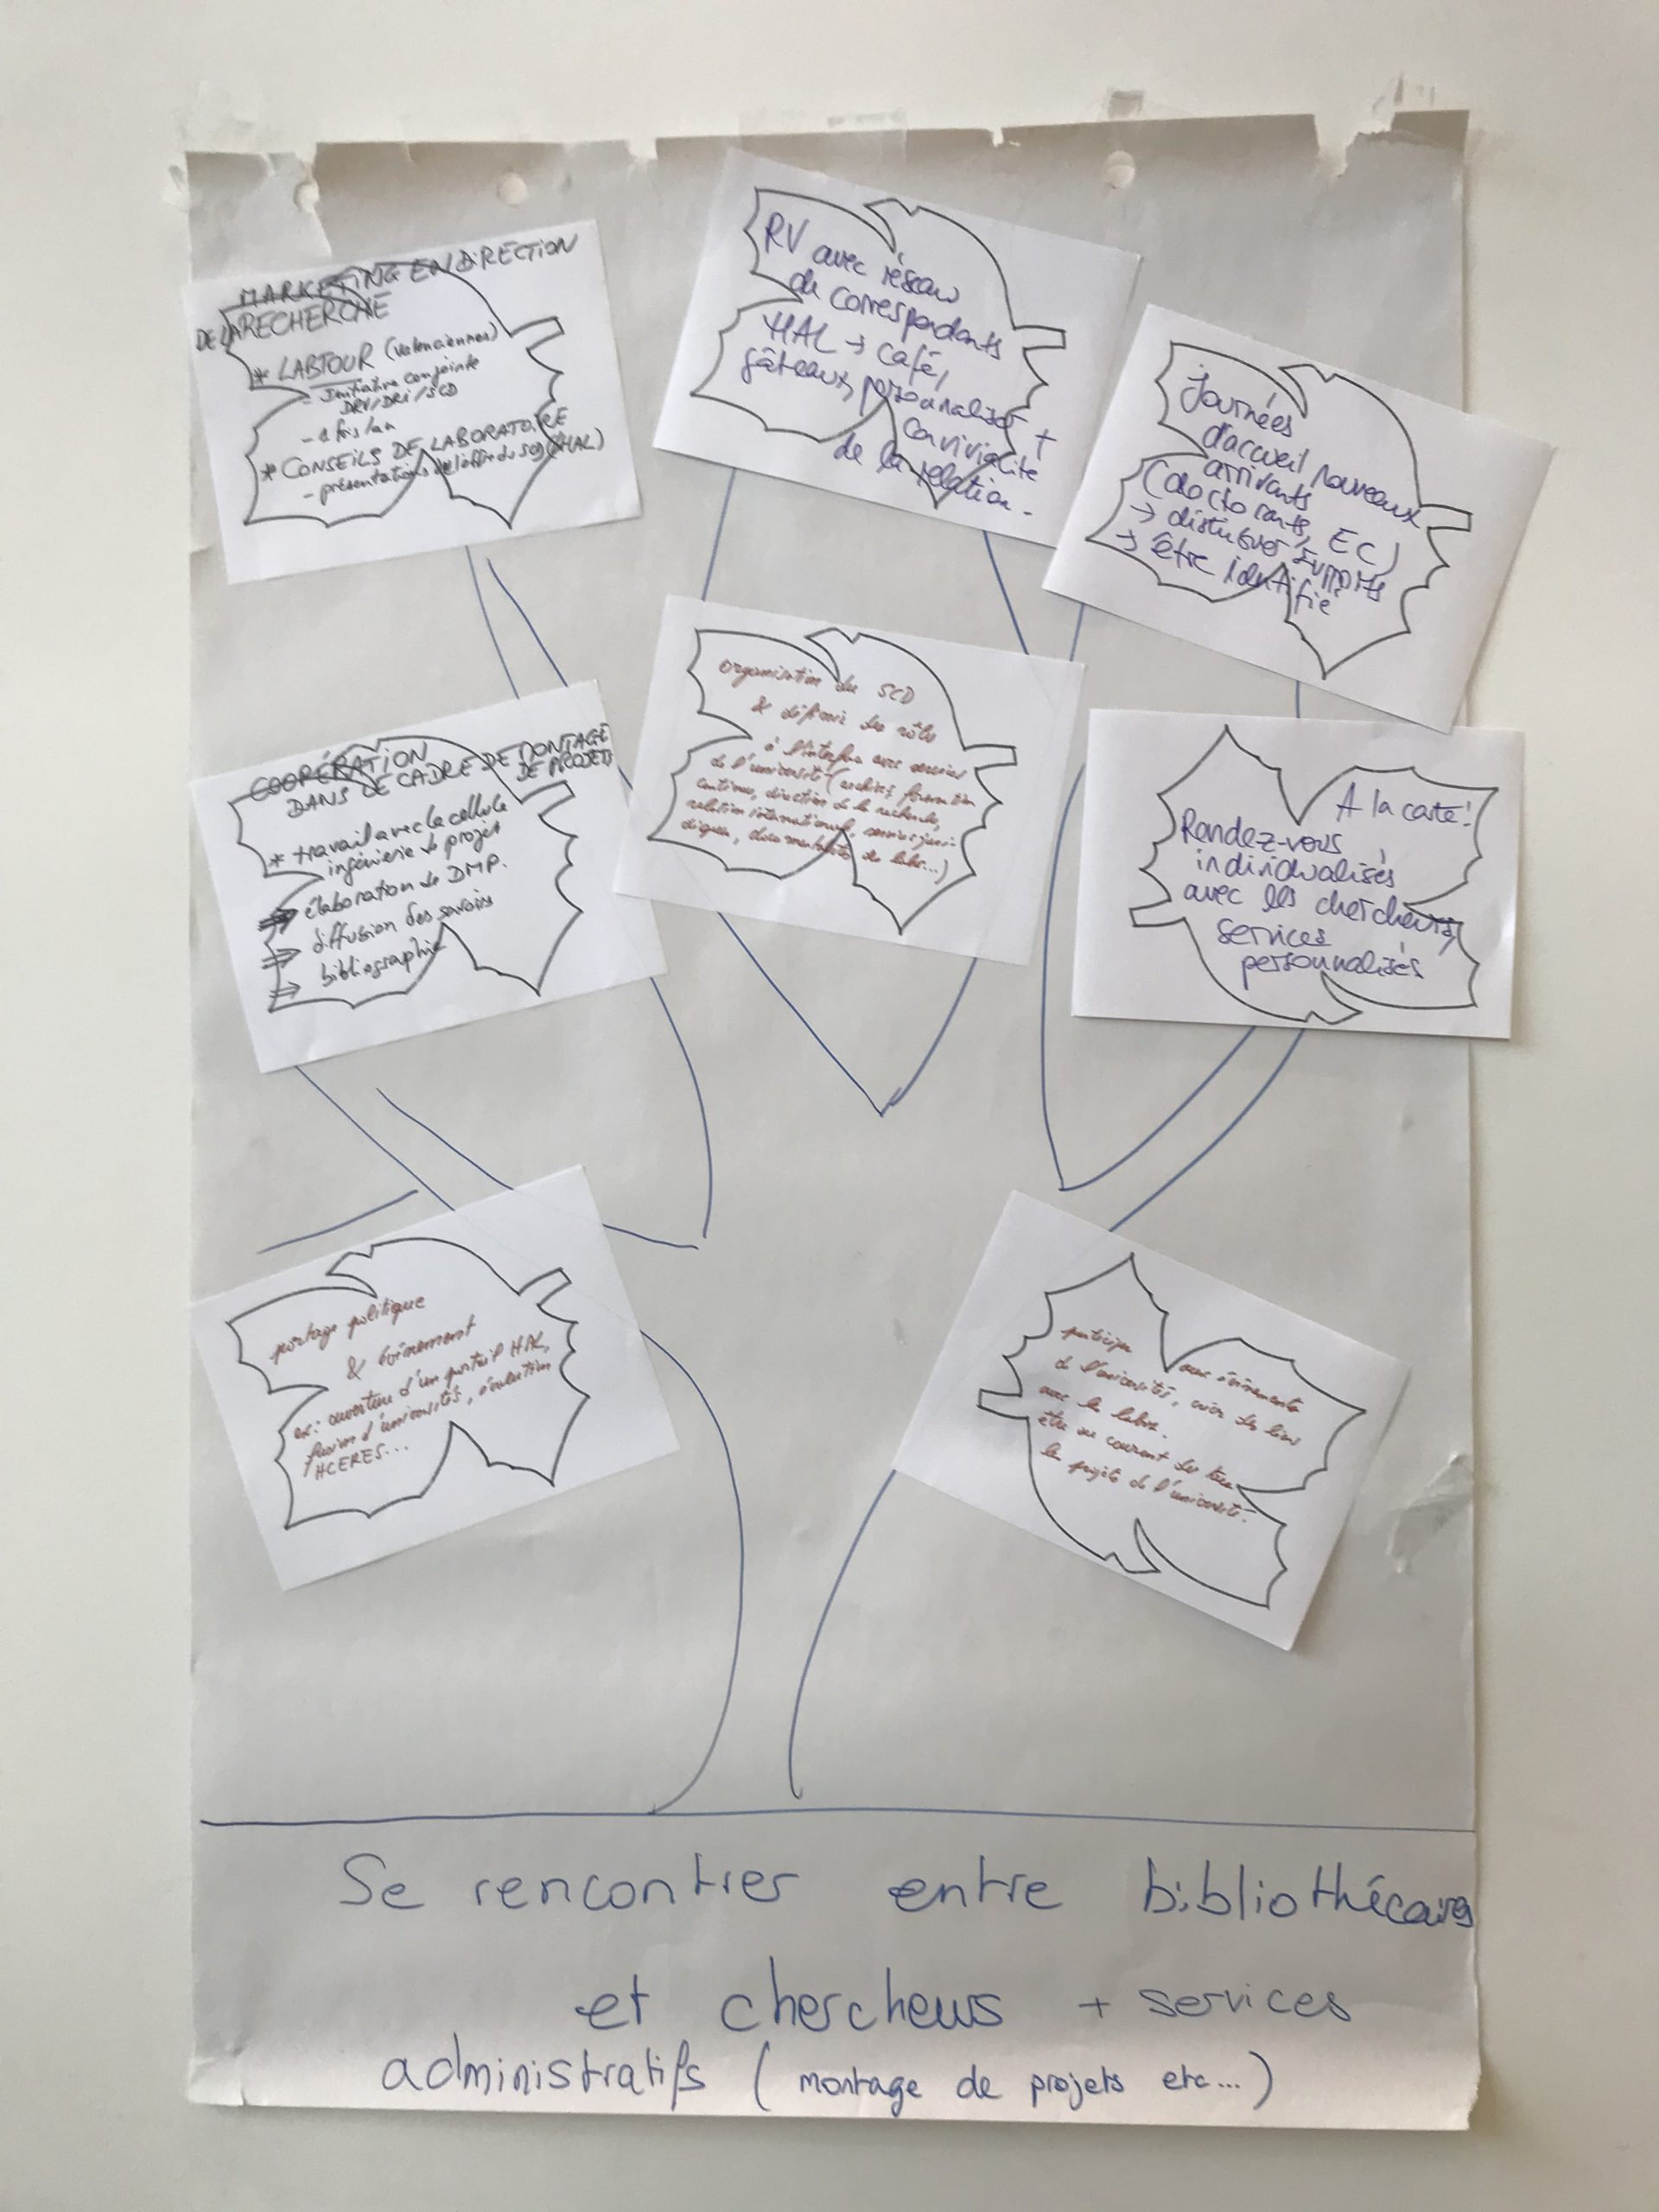 MARKETING EN DIRECTION
DE LA RECHERCHE
* LABTOUR (Valenciennes)
- Initiative conjointe
DRV/DRI/SCD
- 1 fois/an
* CONSEILS DE LABORATOIRE
- présentations de l'offre du SCD (HAL)
RV avec réseau
de correspondants
HAL → café,
gâteaux, personnaliser +
convivialité
de la relation.
Journées
d'accueil nouveaux
arrivants
(doctorants, EC)
→ distribuer supports
→ être identifié
COOPÉRATION
DANS LE CADRE DE MONTAGE
DE PROJETS
* travail avec la cellule
ingénierie de projet
⇒ élaboration de DMP.
⇒ diffusion des savoirs
⇒ bibliographie
organisation du SCD
& définir des rôles
à l'interface avec services
de l'université (archives, formation
continue, direction de la recherche,
relation international, service juri-
dique, documentalistes de labo...)
A la carte!
Rendez-vous
individualisés
avec les chercheurs,
services
personnalisés
portage politique
& évènement
ex: ouverture d'un portail HAL,
fusion d'universités, évaluation
HCERES...
participer aux évènements
de l'université, créer des liens
avec les labos.
être au courant de tous
les projets de l'université.
Se rencontrer entre bibliothécaires
et chercheurs + services
administratifs (montage de projets etc...)